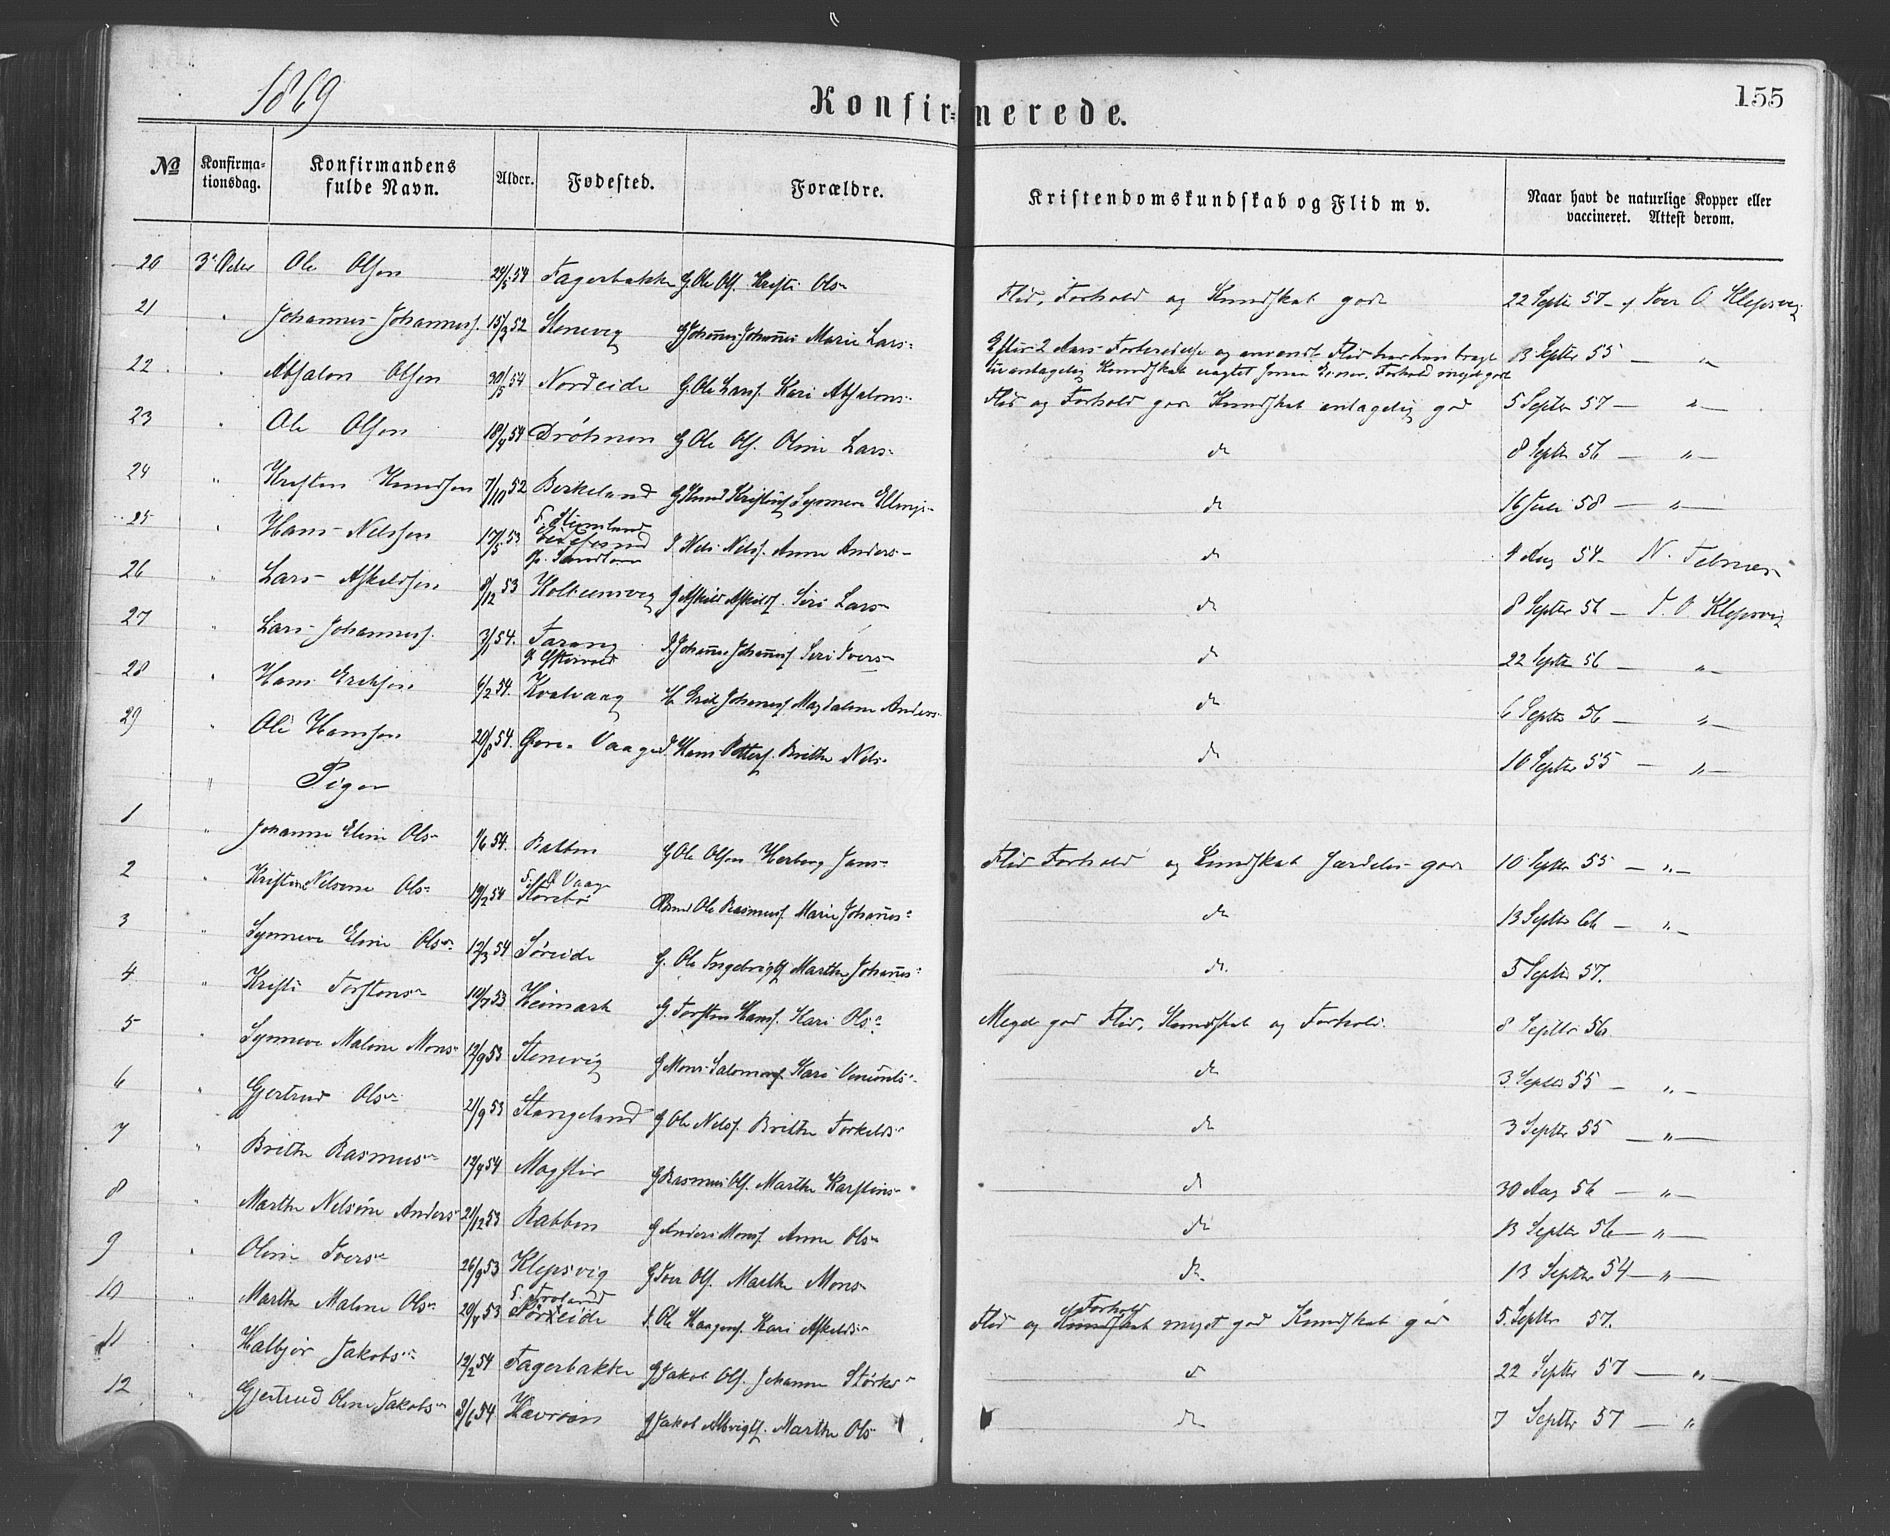 1869
Konfirmerede.
155
No
Konfirma-
tionsdag.
Konfirmandens
fulde Navn.
Alder.
Fødested.
Forældre.
Kristendomskundskab og Flid m v.
Naar havt de naturlige Kopper eller
vaccineret. Attest derom.
20 3' Octbr Ole Olsen 29/5 54 Fagerbakke G. Ole Ols. Kristi Ols- Flid, Forhold og Kundskab gode 22 Septbr 57 - Iver O. Klepsvig
21 " Johannes Johanness. 15/2 52 Stenevig G Johannes Johanness Marie Lars- Efter 2 Aars Forberedelse og anvendt Flid har han bragt 13 Septbr 55 — " —
Kundskab uagtet Evner, Forhold meget godt
22 " Absalon Olsen 30/5 54 Nordeide G. Ole Larss. Kari Absalons- Flid og Forhold gode Kundskab antagelig god 5 Septbr 57 — " —
23 " Ole Olsen 18/4 54 Drøhnen G Ole Ols. Oline Lars- do 8 Septbr 56 — " —
24 " Kristen Knudsen 7/10 52 Birkeland G Knud Kristens Synneva Ellings- do 16 Juli 58 — " —
25 " Hans Nelssen 17/5 53 I. Nels Nelss. Anne Anders- do 4 Aug 54 - N.
26 " Lars Askeldsen 8/12 53 Kolbeensvig G Askeld Askelds. Siri Lars- do 8 Septbr 56 - I. O. Klepsvig
27 " Lars Johanness. 3/1 54. Johannes Johanness Siri Ivers- do 22 Septbr 56 — " —
28 " Hans Eriksen 6/2 54. Kvalvaag H Erik Johanness Magdalene Anders- do 6 Septbr 56 — " —
29 " Ole Hansen 20/8 54. Øvre Vaage I. Hans Petters. Brithe Nels- do 10 Septbr 55 — " —
" Piger
1 " Johanne Eline Ols- 1/6 54. Rabben G Ole Olsen Herborg Jans- Flid Forhold og Kundskab særdeles god 10 Septbr 55 — " —
2 " Kristine Nelsine Ols- 19/2 54 Storebø Ole Rasmuss Marie Johannes- do 13 Septbr 66 — " —
3 " Synneve Eline Ols- 12/3 54 Søreide G. Ole Ingebrigts Marthe Johannes- do. 5 Septbr 57.
4 " Kristi Torstens- 10/7 53 Heimark G. Torsten Hans. Kari Ols- Meget god Flid, Kundskab og Forhold. 8 Septbr 56
5 " Synneve Malene Mons- 12/9 53 Stenevig G Mons Salomons. Kari - do 3 Septbr 55 — " —
6 " Gjertrud Ols- 21/9 53 Stangeland G Ole Nelss. Brithe Torkelds- do 3 Septbr 55 — " —
7 " Brithe Rasmus- 12/4 54 Møgster G Rasmus Ols. Marthe Karstens- do 30 Aug 56 — " —
8 " Marthe Nelsine Anders- 21/12 53 Rabben G Anders Monss. Anne Ols- do 13 Septbr 56 — " —
9 " Oline Ivers- 26/9 53 Klepsvig G Iver Ols. Marthe Mons- do. 13 Septbr 54 — " —
10 " Marthe Malene Ols- 20/4 53 Søreide I. Ole Haagens. Kari Askelds- Flid og Forhold meget god Kundskab god 5 Septbr 57.
11 " Halbjør Jakobs- 12/2 54 Fagerbakke G Jakob Ols. Johanne Størks- do 22 Septbr 57 — " —
12 " Gjertrud Oline Jakobs- 3/6 54 G Jakob Marthe Ols- do 7 Septbr 57 — "